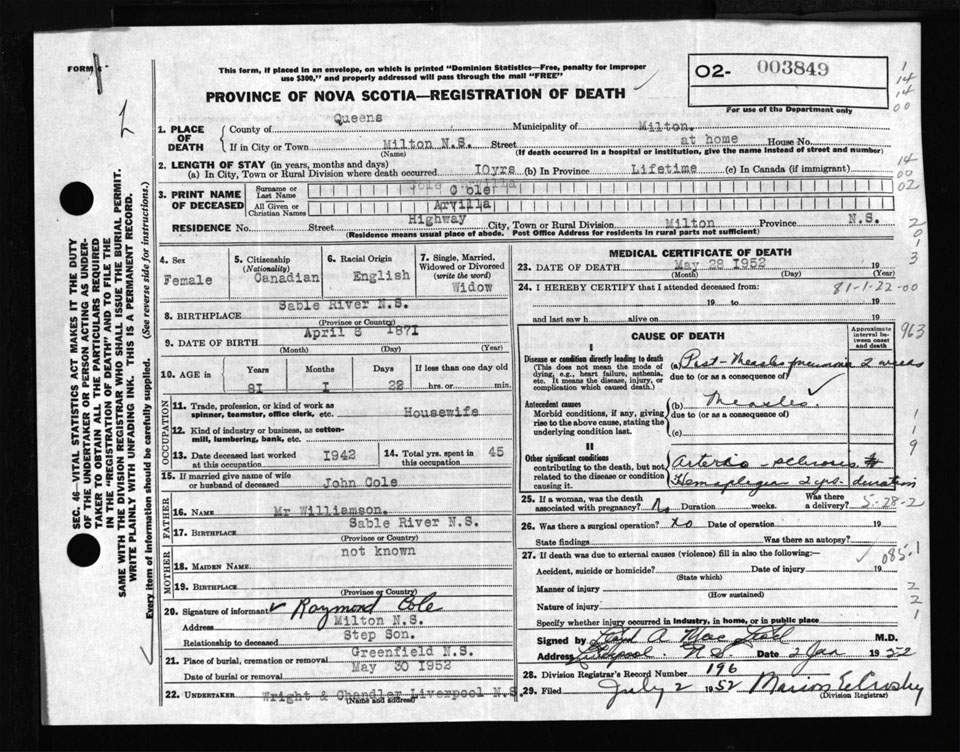 FORM
This form, if placed in an envelope, on which is printed "Dominion Statistics—Free, penalty for improper
use $300," and properly addressed will pass through the mail "FREE"
PROVINCE OF NOVA SCOTIA—REGISTRATION OF DEATH
O2- 003849
For use of the Department only
1. PLACE OF DEATH
County of Queens Municipality of Milton.
If in City or Town Milton N.S. Street at home House No.
(Name) (If death occurred in a hospital or institution, give the name instead of street and number)
2. LENGTH OF STAY (in years, months and days)
(a) In City, Town or Rural Division where death occurred IOyrs (b) In Province Lifetime (c) In Canada (if immigrant)
3. PRINT NAME OF DECEASED
Surname or Last Name Cole
All Given or Christian Names Arvilla
RESIDENCE No. Street Highway City, Town or Rural Division Milton Province N.S.
(Residence means usual place of abode. Post Office Address for residents in rural parts not sufficient)
SEC. 46—VITAL STATISTICS ACT MAKES IT THE DUTY
OF THE UNDERTAKER OR PERSON ACTING AS UNDER-
TAKER TO OBTAIN ALL THE PARTICULARS REQUIRED
IN THE "REGISTRATION OF DEATH" AND TO FILE THE
SAME WITH THE DIVISION REGISTRAR WHO SHALL ISSUE THE BURIAL PERMIT.
WRITE PLAINLY WITH UNFADING INK. THIS IS A PERMANENT RECORD.
Every item of information should be carefully supplied. (See reverse side for instructions.)
4. Sex Female
5. Citizenship (Nationality) Canadian
6. Racial Origin English
7. Single, Married, Widowed or Divorced (write the word) Widow
8. BIRTHPLACE Sable River N.S.
(Province or Country)
9. DATE OF BIRTH April 6 I87I
(Month) (Day) (Year)
10. AGE in Years Months Days If less than one day old
8I I 22 hrs. or min.
OCCUPATION
11. Trade, profession, or kind of work as spinner, teamster, office clerk, etc. Housewife
12. Kind of industry or business, as cotton-mill, lumbering, bank, etc.
13. Date deceased last worked at this occupation I942
14. Total yrs. spent in this occupation 45
15. If married give name of wife or husband of deceased John Cole
FATHER
16. Name Mr Williamson.
17. Birthplace Sable River N.S.
(Province or Country)
MOTHER
18. Maiden Name not known
19. Birthplace
(Province or Country)
20. Signature of informant Raymond Cole
Address Milton N.S.
Relationship to deceased Step Son.
21. Place of burial, cremation or removal Greenfield N.S.
Date of burial or removal May 30 I952
22. UNDERTAKER Wright & Chandler Liverpool N.S.
(Name and address)
MEDICAL CERTIFICATE OF DEATH
23. DATE OF DEATH May 28 I952 19
(Month) (Day) (Year)
24. I HEREBY CERTIFY that I attended deceased from: 81-1-22-00
19 to 19
and last saw h alive on 19
CAUSE OF DEATH
Approximate interval between onset and death
I
Disease or condition directly leading to death
(This does not mean the mode of dying, e.g., heart failure, asthenia, etc. It means the disease, injury, or complication which caused death.)
(a) Post-Measles pneumonia 2 weeks
due to (or as a consequence of)
Antecedent causes
Morbid conditions, if any, giving rise to the above cause, stating the underlying condition last.
(b) Measles.
due to (or as a consequence of)
(c)
II
Other significant conditions
contributing to the death, but not related to the disease or condition causing it.
Arterio-sclerosis
Hemaplegia 2 yrs. duration
25. If a woman, was the death associated with pregnancy? No Duration weeks. Was there a delivery? 5-28-2
26. Was there surgical operation? no Date of operation 19
State findings Was there an autopsy?
27. If death was due to external causes (violence) fill in also the following:— 085.1
Accident, suicide or homicide? Date of injury 19
(State which)
Manner of injury
(How sustained)
Nature of injury
Specify whether injury occurred in industry, in home, or in public place
Signed by Lloyd A M.D.
Address Liverpool. N.S. Date 2 Jan 1952
28. Division Registrar's Record Number 196
29. Filed July 2 1952 Marion E. Crosby
(Division Registrar)
1
14
14
00
14
00
02
2
0
1
3
963
1
9
2
2
1